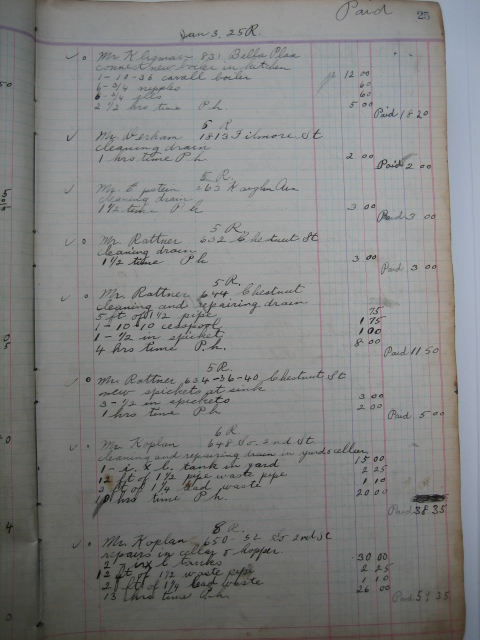 Paid 25
Jan 3, 25 R.
Mr Kligman 831 Bella Plax
connect new boiler in kitchen
1-12-36 cavall boiler 12 00
6-3/4 nipples 60
6-3/4 ells 60
2 1/2 hrs time P.h. 5 00
Paid 18 20
5 R
Mr. Verham 1813 Filmore St
cleaning drain
1 hrs time P.h. 2 00
Paid 2 00
5 R.
Mr. Epstein 263 Kaighn Ave
cleaning drain
1 1/2 time P h 3 00
Paid 3 00
5 R.
Mr. Rattner 632 Chestnut St
cleaning drain
1 1/2 time P.h 3 00
Paid 3 00
5 R.
Mr. Rattner 644 Chestnut
cleaning and repairing drain
5 ft of 1 1/2 pipe 75
1-10-10 cesspool 1 75
1-1/2 in spicket 1 00
4 hrs time P.h. 8 00
Paid 11 50
5 R.
Mr. Rattner 634-36-40 Chestnut St
new spickets at sink
3-1/2 in spickets 3 00
1 hrs time P.h 2 00
Paid 5 00
6 R
Mr. Koplan 648 So. 2nd St
cleaning and repairing drain in yard & cellar
1- i. x l. tank in yard 15 00
12 ft of 1 1/2 pipe waste pipe 2 25
2 ft of 1 1/4 lead waste 1 10
10 hrs time P.h. 20 00
Paid 38 35
8 R.
Mr. Koplan 650-52 So 2nd St
repairs in cellar & hopper.
2 i x l tanks 30 00
12 ft of 1 1/2 waste pipe 2 25
2 ft of 1 1/4 lead waste 1 10
13 hrs time P.h. 26 00
Paid 59 35